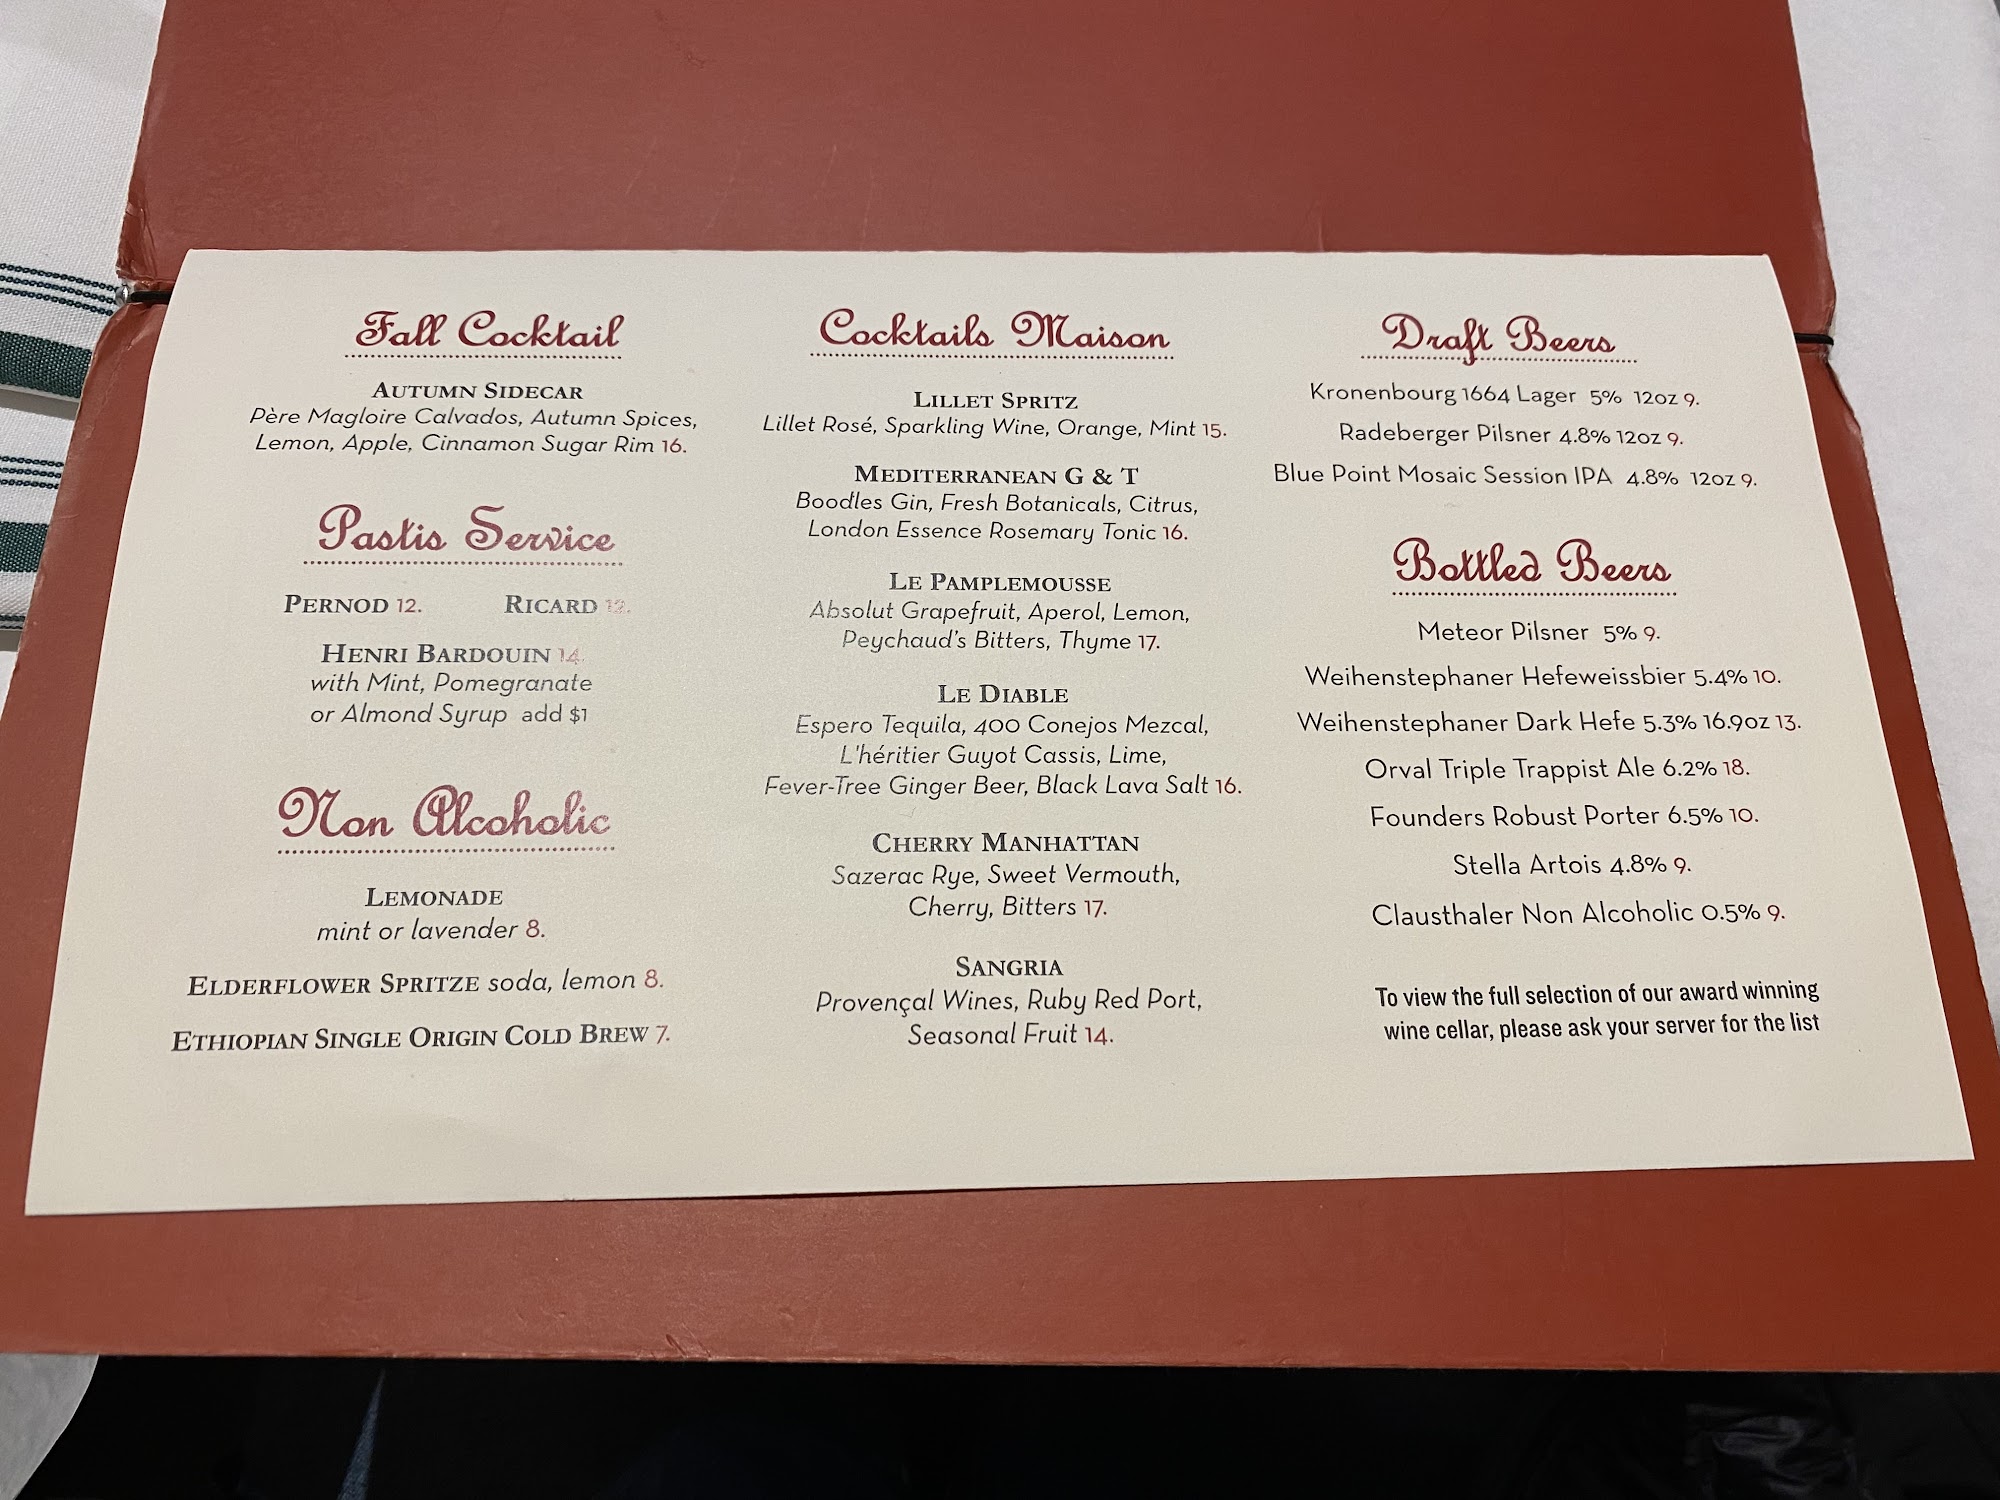 Fall Cocktail
AUTUMN SIDECAR
Père Magloire Calvados, Autumn Spices,
Lemon, Apple, Cinnamon Sugar Rim 16.
Pastis Service
PERNOD 12. RICARD 12.
HENRI BARDOUIN 14.
with Mint, Pomegranate
or Almond Syrup add $1
Non Alcoholic
LEMONADE
mint or lavender 8.
ELDERFLOWER SPRITZE soda, lemon 8.
ETHIOPIAN SINGLE ORIGIN COLD BREW 7.
Cocktails Maison
LILLET SPRITZ
Lillet Rosé, Sparkling Wine, Orange, Mint 15.
MEDITERRANEAN G & T
Boodles Gin, Fresh Botanicals, Citrus,
London Essence Rosemary Tonic 16.
LE PAMPLEMOUSSE
Absolut Grapefruit, Aperol, Lemon,
Peychaud's Bitters, Thyme 17.
LE DIABLE
Espero Tequila, 400 Conejos Mezcal,
L'héritier Guyot Cassis, Lime,
Fever-Tree Ginger Beer, Black Lava Salt 16.
CHERRY MANHATTAN
Sazerac Rye, Sweet Vermouth,
Cherry, Bitters 17.
SANGRIA
Provençal Wines, Ruby Red Port,
Seasonal Fruit 14.
Draft Beers
Kronenbourg 1664 Lager 5% 12oz 9.
Radeberger Pilsner 4.8% 12oz 9.
Blue Point Mosaic Session IPA 4.8% 12oz 9.
Bottled Beers
Meteor Pilsner 5% 9.
Weihenstephaner Hefeweissbier 5.4% 10.
Weihenstephaner Dark Hefe 5.3% 16.9oz 13.
Orval Triple Trappist Ale 6.2% 18.
Founders Robust Porter 6.5% 10.
Stella Artois 4.8% 9.
Clausthaler Non Alcoholic 0.5% 9.
To view the full selection of our award winning
wine cellar, please ask your server for the list